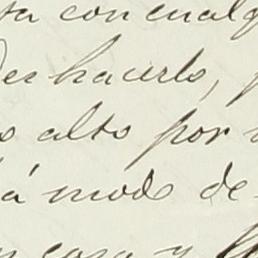 con cualq
hacerlo,
alto por
á modo de
cosa y